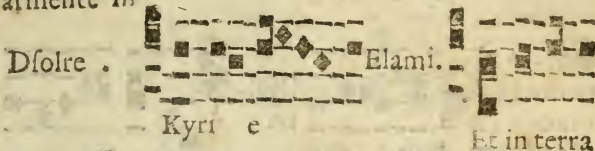 armente in
Dſolre .
Elami.
Kyri e
Et in terra